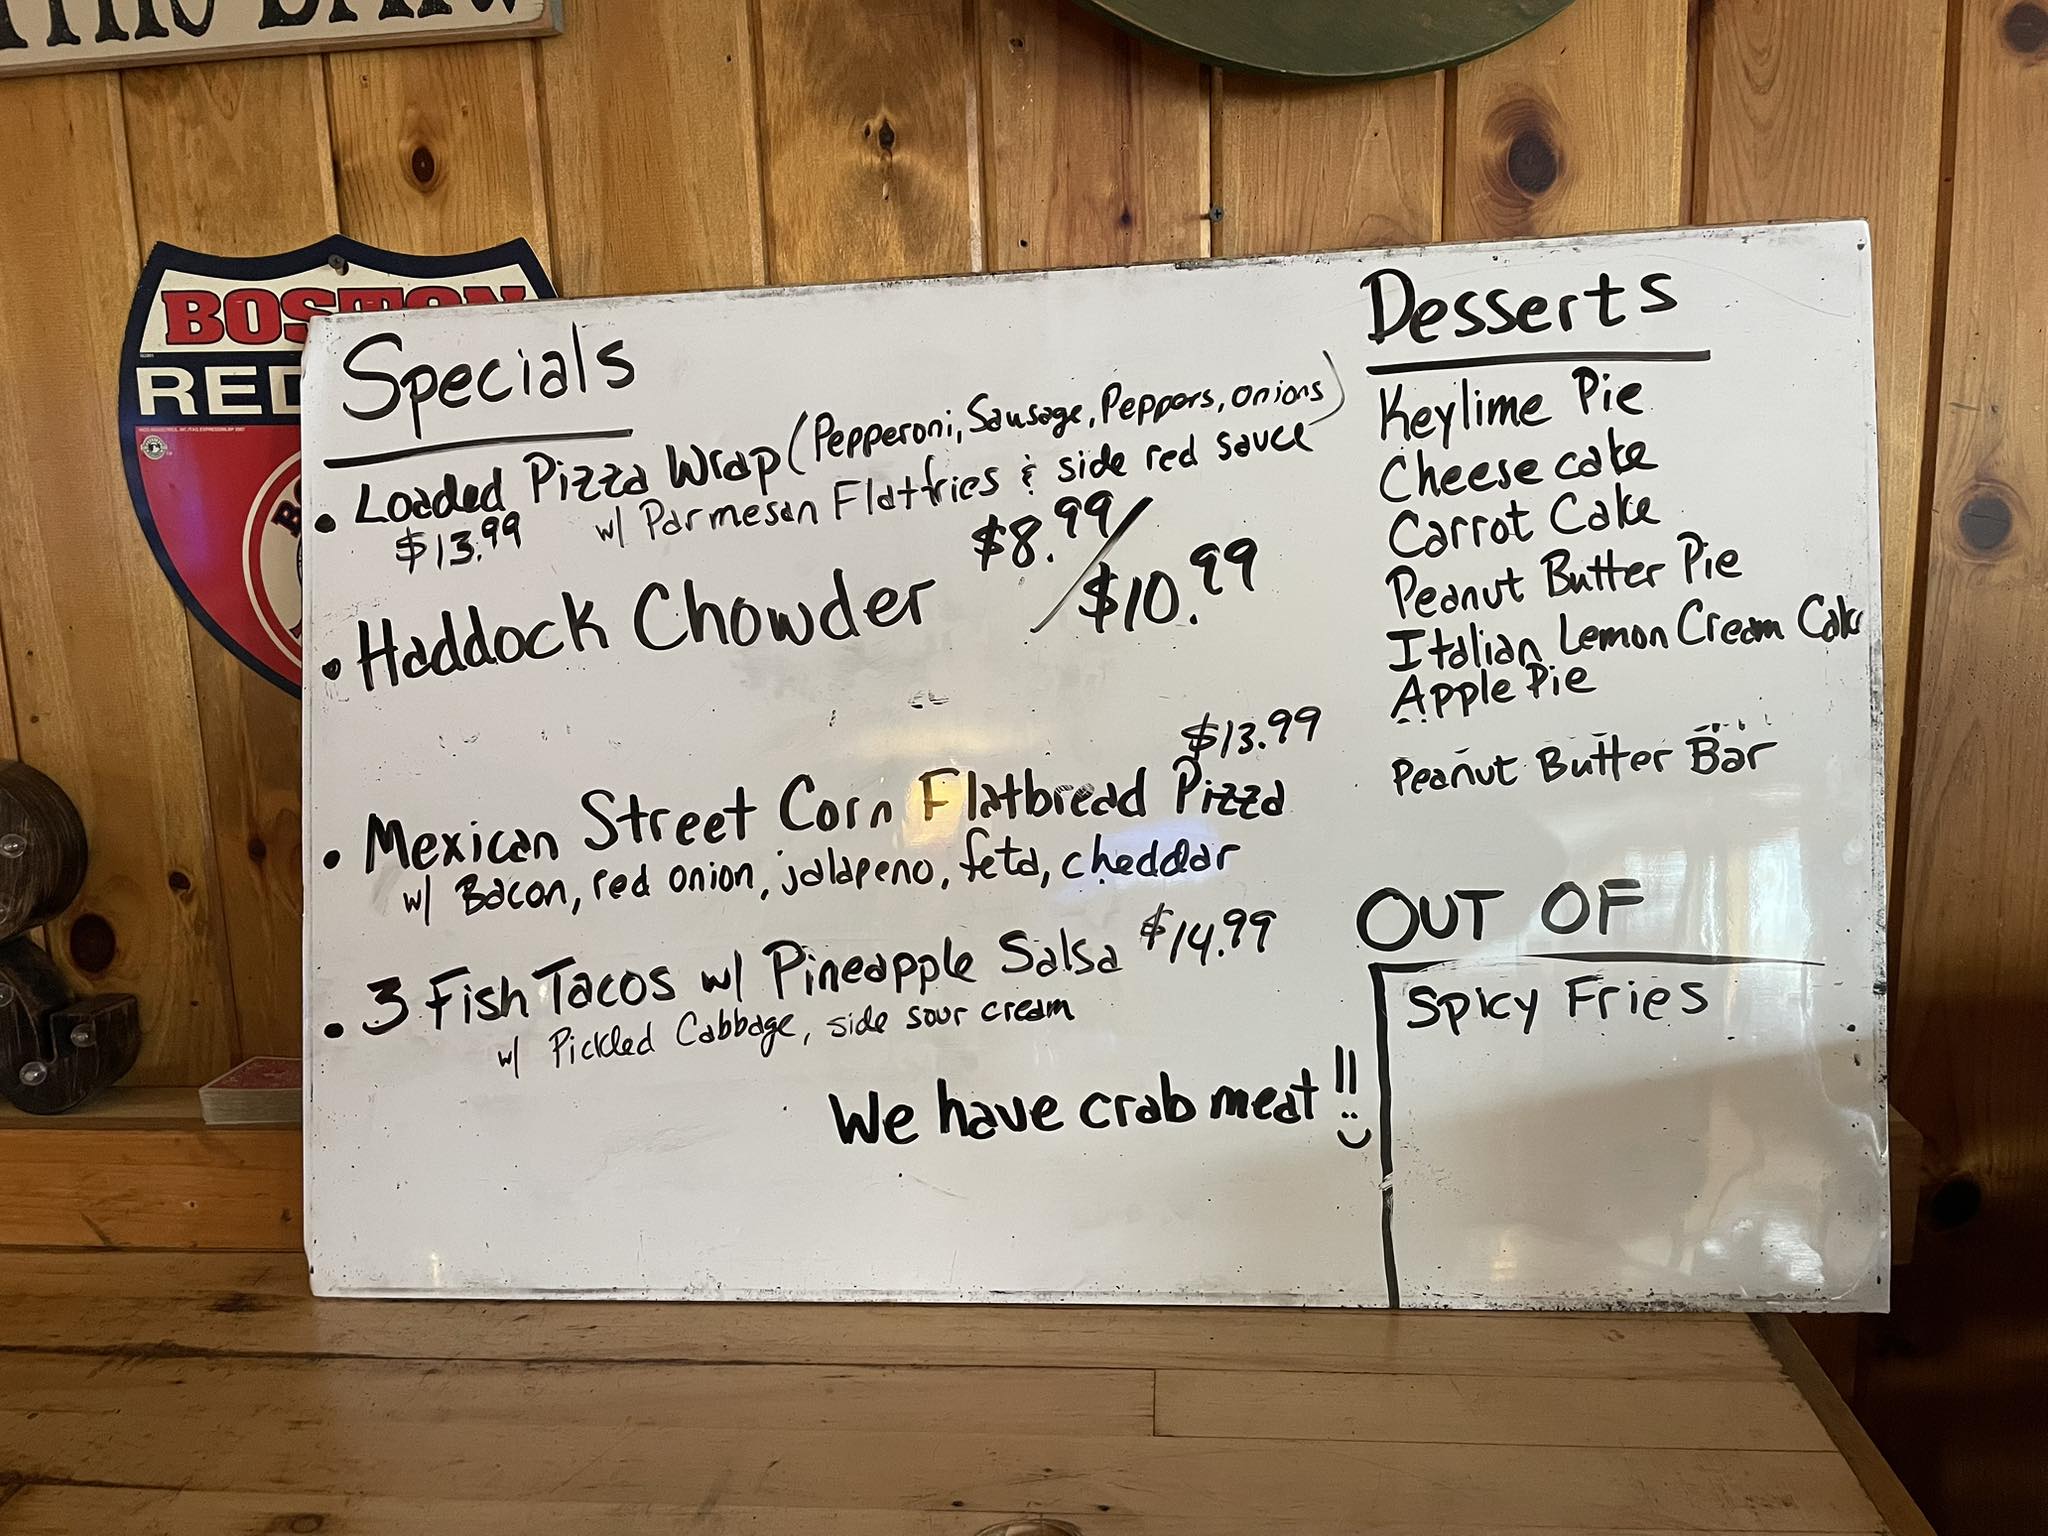 BOSTON
RED
Specials
• Loaded Pizza Wrap (Pepperoni, Sausage, Peppers, onions)
$13.99 w/ Parmesan Flatfries & side red sauce
• Haddock Chowder $8.99/$10.99
$13.99
• Mexican Street Corn Flatbread Pizza
w/ Bacon, red onion, jalapeno, feta, cheddar
• 3 Fish Tacos w/ Pineapple Salsa $14.99
w/ Pickled Cabbage, side sour cream
We have crab meat!!
Desserts
Keylime Pie
Cheese cake
Carrot Cake
Peanut Butter Pie
Italian Lemon Cream Cake
Apple Pie
Peanut Butter Bar
OUT OF
Spicy Fries